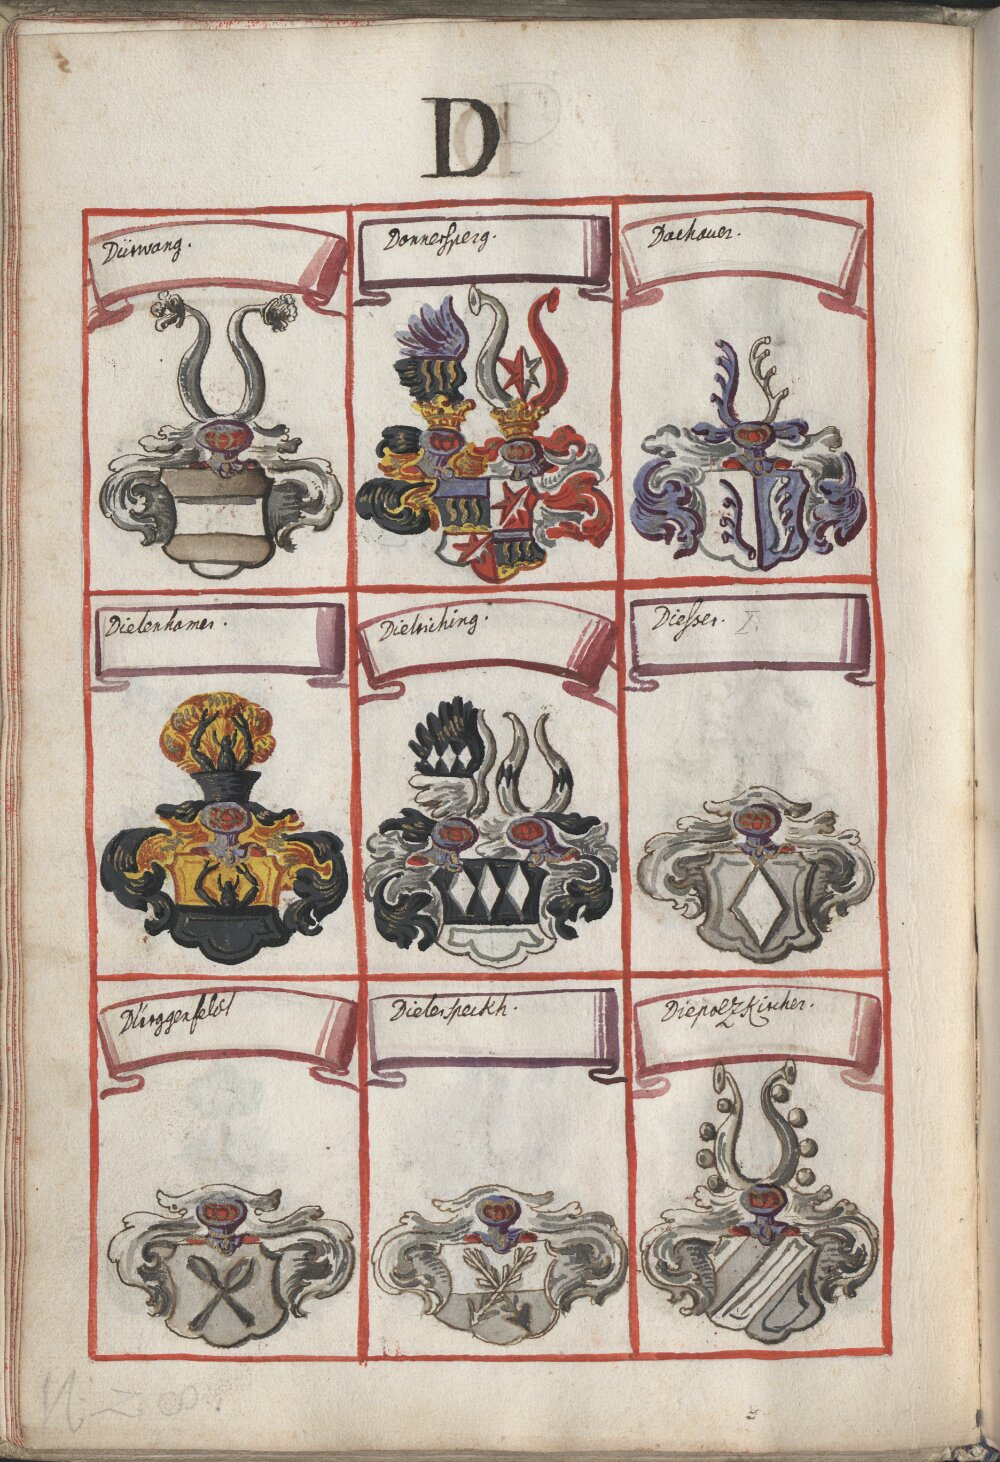 D
Dürwang.
Donnersperg.
Dachauer.
Dietenhamer.
Dietriching.
Diesser. I.
Dürggenfeldt
Dieterspeckh.
Diepolzkircher.